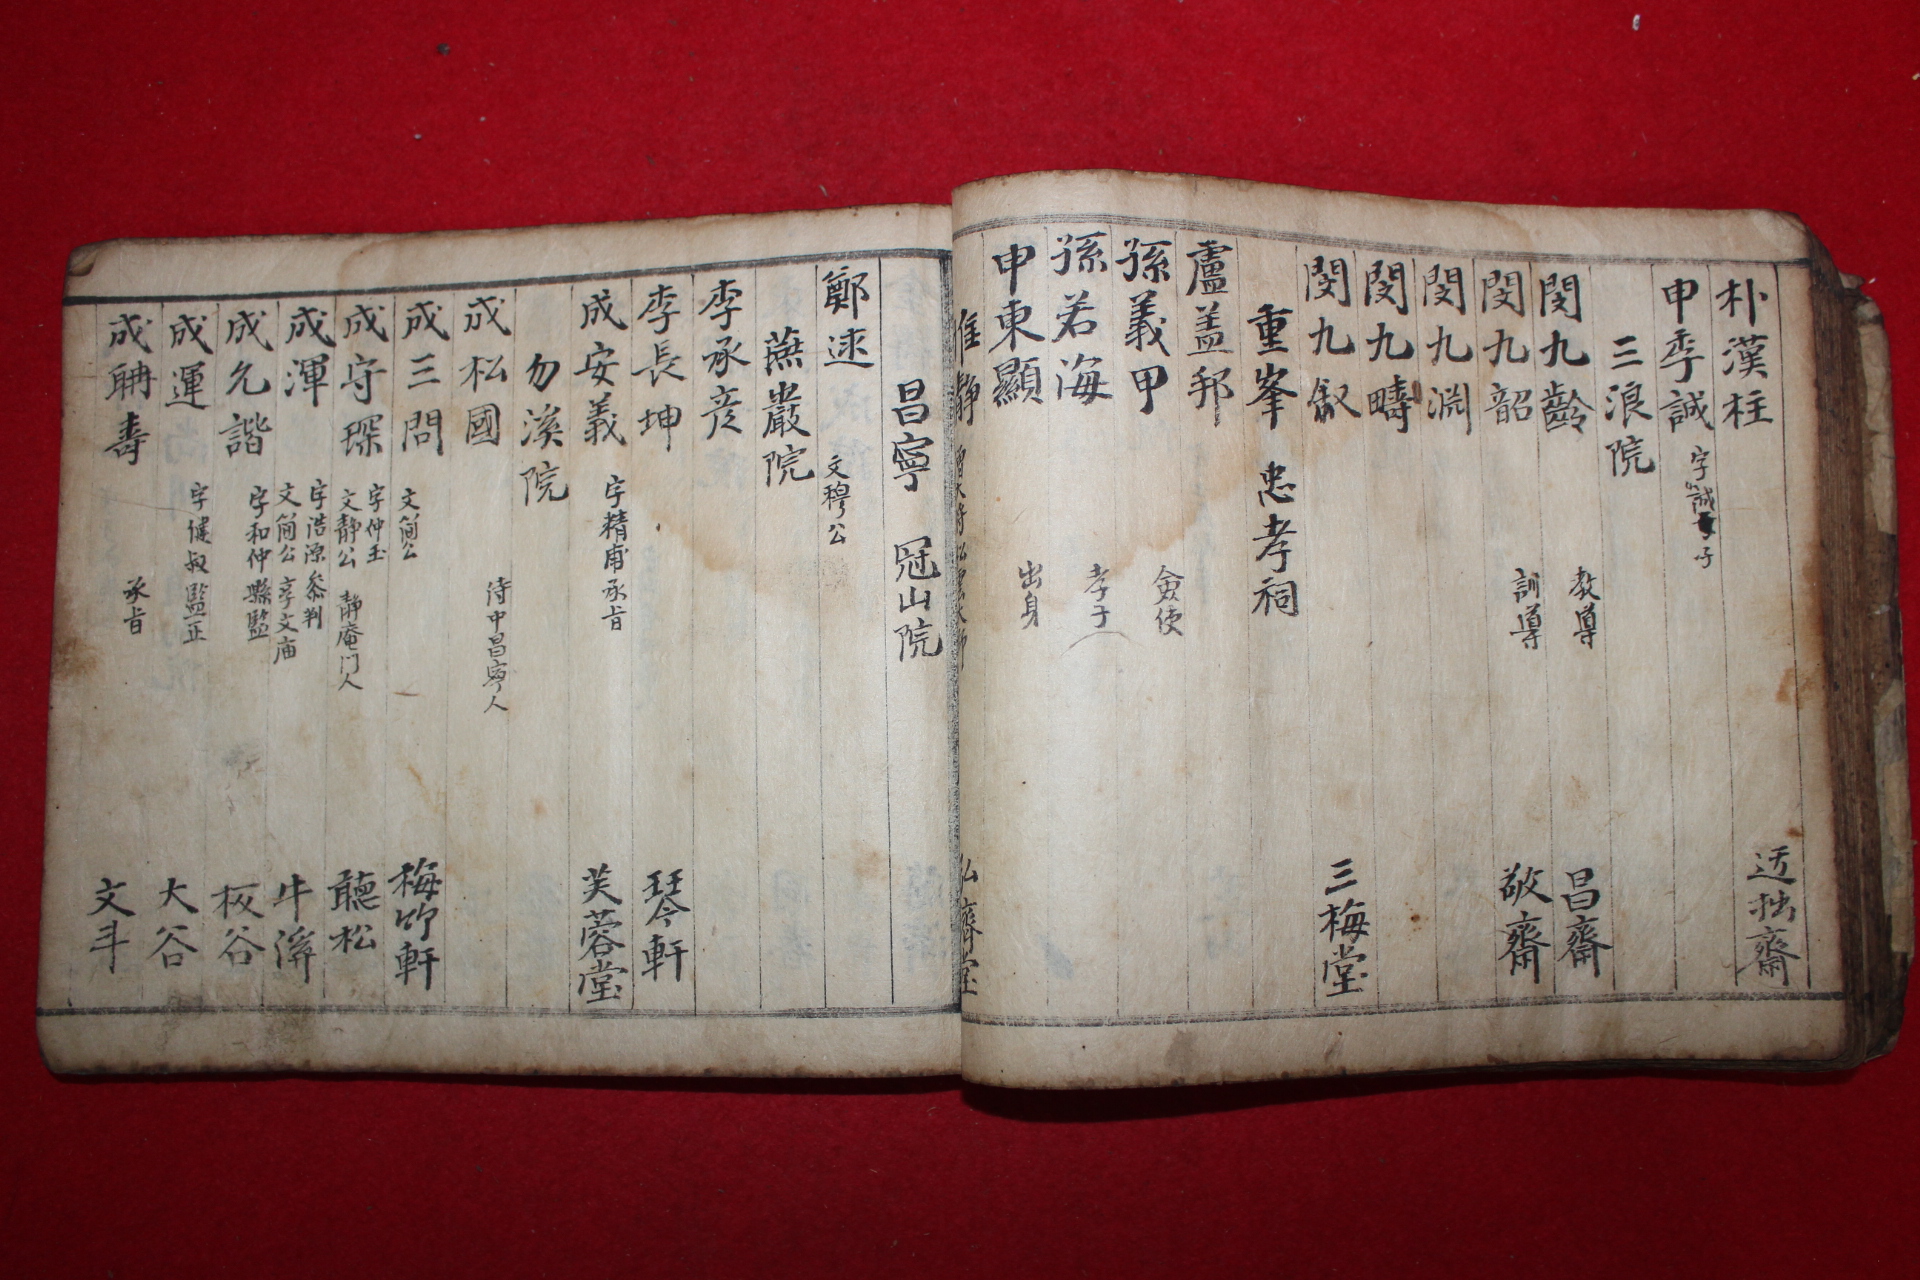 朴漢柱 迃拙齋
申季誠 字誠子
三浪院
閔九齡 教導 昌齋
閔九韶 訓導 敬齋
閔九淵
閔九疇
閔九叙 三梅堂
重峯 忠孝祠
盧盖邦
孫義甲 僉使
孫若海 孝子
申東顯 出身
惟靜 弘濟堂
昌寧 冠山院
鄭逑 文穆公
燕巖院
李承彦
李長坤 琴軒
成安義 字精甫承旨 芙蓉堂
勿溪院
成松國 侍中昌寧人
成三問 文簡公 梅竹軒
成守琛 字仲玉 文靜公 靜庵门人 聽松
成渾 字浩源參判 文簡公享文庙 牛溪
成允諧 字和仲縣監 板谷
成運 字健叔監正 大谷
成聃壽 承旨 文斗